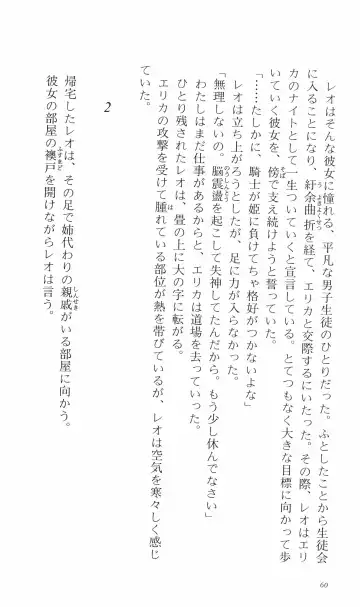 レオはそんな彼女に憧れる、平凡な男子生徒のひとりだった。ふとしたことから生徒会
に入ることになり、紆余曲折を経て、エリカと交際するにいたった。その際、レオはエリ
カのナイトとして一生ついていくと宣言している。とてつもなく大きな目標に向かって歩
いていく彼女を、傍で支え続けようと誓っていた。
「……たしかに、騎士が姫に負けてちゃ格好がつかないよな」
レオは立ち上がろうとしたが、足に力が入らなかった。
「無理しないの。脳震盪を起こして失神してたんだから。もう少し休んでなさい」
わたしはまだ仕事があるからと、エリカは道場を去っていった。
ひとり残されたレオは、畳の上に大の字に転がる。
エリカの攻撃を受けて腫れている部位が熱を帯びているが、レオは空気を寒々しく感じ
ていた。
2
帰宅したレオは、その足で姉代わりの親戚がいる部屋に向かう。
彼女の部屋の襖戸を開けながらレオは言う。
60